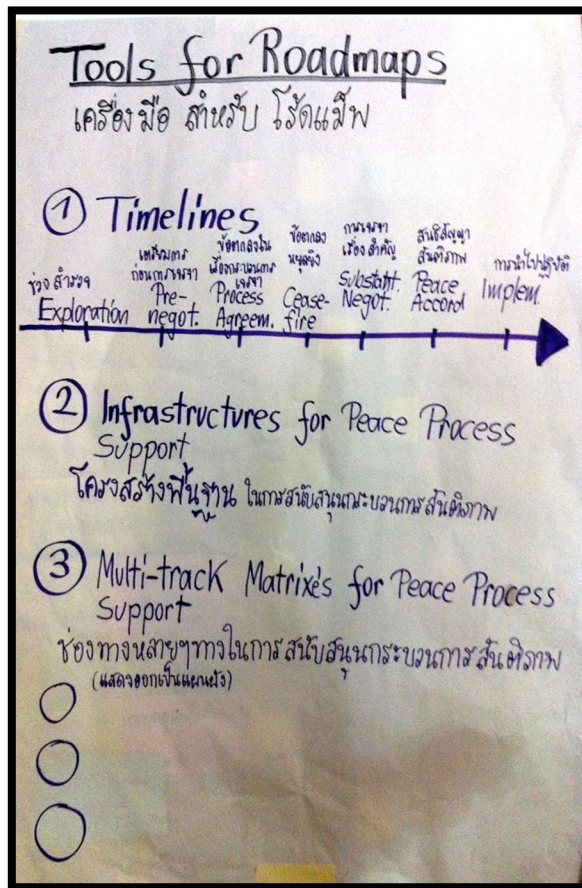 Tools for Roadmaps
เครื่องมือ สำหรับ โร้ดแม็พ
① Timelines
ช่วงสำรวจ
Exploration
เตรียมการ
ก่อนการเจรจา
Pre-
negot.
ข้อตกลงใน
เรื่องกระบวนการ
เจรจา
Process
Agreem.
ข้อตกลง
หยุดยิง
Cease-
fire
การเจรจา
เรื่องสำคัญ
Substant.
Negot.
สนธิสัญญา
สันติภาพ
Peace
Accord
การนำไปปฏิบัติ
Implem.
② Infrastructures for Peace Process
Support
โครงสร้างพื้นฐาน ในการสนับสนุนกระบวนการสันติภาพ
③ Multi-track Matrixes for Peace Process
Support
ช่องทางหลายๆทางในการสนับสนุนกระบวนการสันติภาพ
(แสดงออกเป็นแผนผัง)